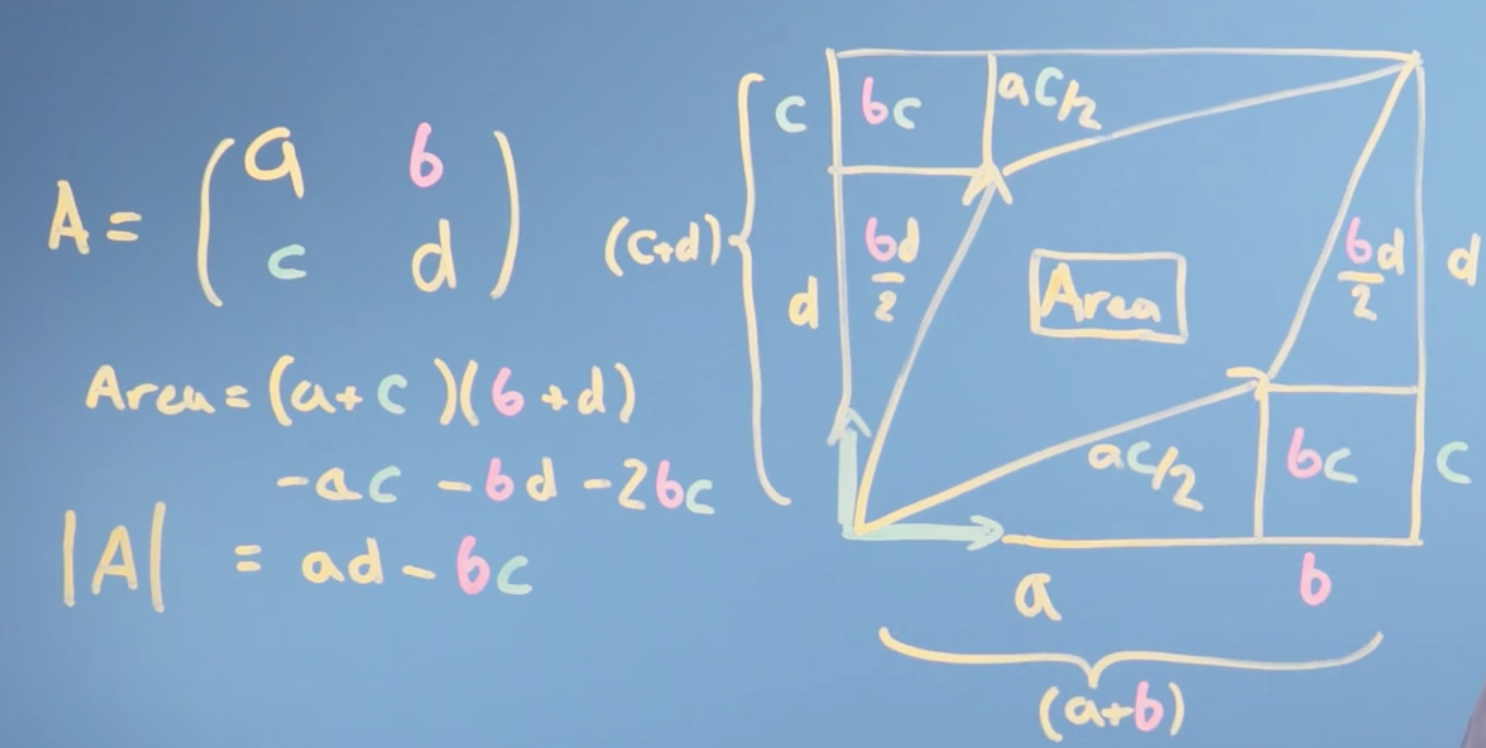 A = ( a b
c d )
Area = (a+c)(b+d)
-ac -bd -2bc
|A| = ad - bc
(c+d)
c
bc
ac/2
d
bd/2
Area
bd/2
d
ac/2
bc
c
a
b
(a+b)